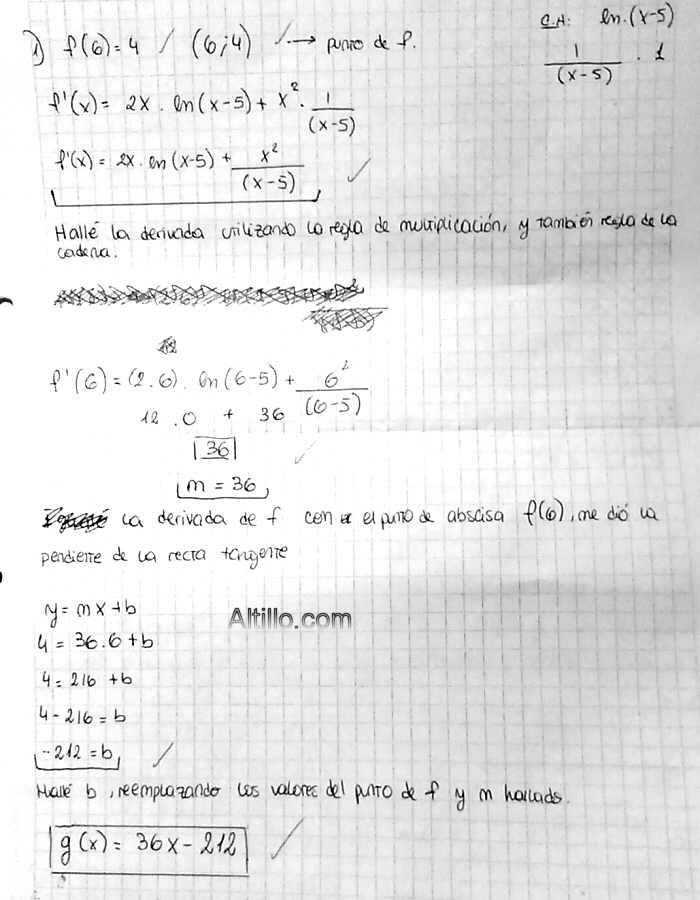 1) f(6) = 4 / (6;4) → punto de f.
C.A: ln.(x-5)
1/(x-5) . 1
f'(x) = 2x . ln(x-5) + x² . 1/(x-5)
f'(x) = 2x . ln(x-5) + x²/(x-5)
Hallé la derivada utilizando la regla de multiplicación, y también regla de la
cadena.
f'(6) = (2.6) . ln(6-5) + 6²/(6-5)
12 . 0 + 36
36
m = 36
la derivada de f con el punto de abscisa f(6), me dió la
pendiente de la recta tangente
y = mx + b
Altillo.com
4 = 36.6 + b
4 = 216 + b
4 - 216 = b
-212 = b
Hallé b, reemplazando los valores del punto de f y m hallado.
g(x) = 36x - 212